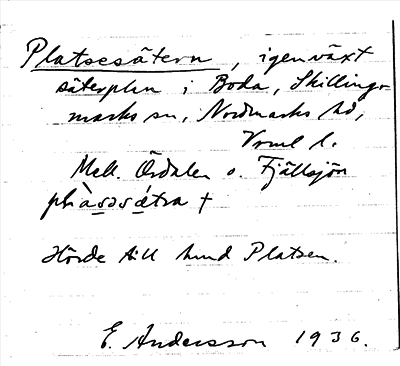 Platsesätern, igenväxt
säterplan i Boda, Skillings-
marks sn, Nordmarks hd,
Vrml l.
Mell. Ördalen o. Fjällsjön
plàsəsǽtra †
Hörde till hmd Platsen.
E. Andersson 1936.